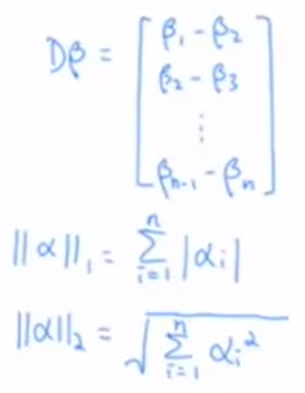 Dβ = [ β₁ - β₂
β₂ - β₃
⋮
βₙ₋₁ - βₙ ]
||α||₁ = ∑ᵢ₌₁ⁿ |αᵢ|
||α||₂ = √(∑ᵢ₌₁ⁿ αᵢ²)